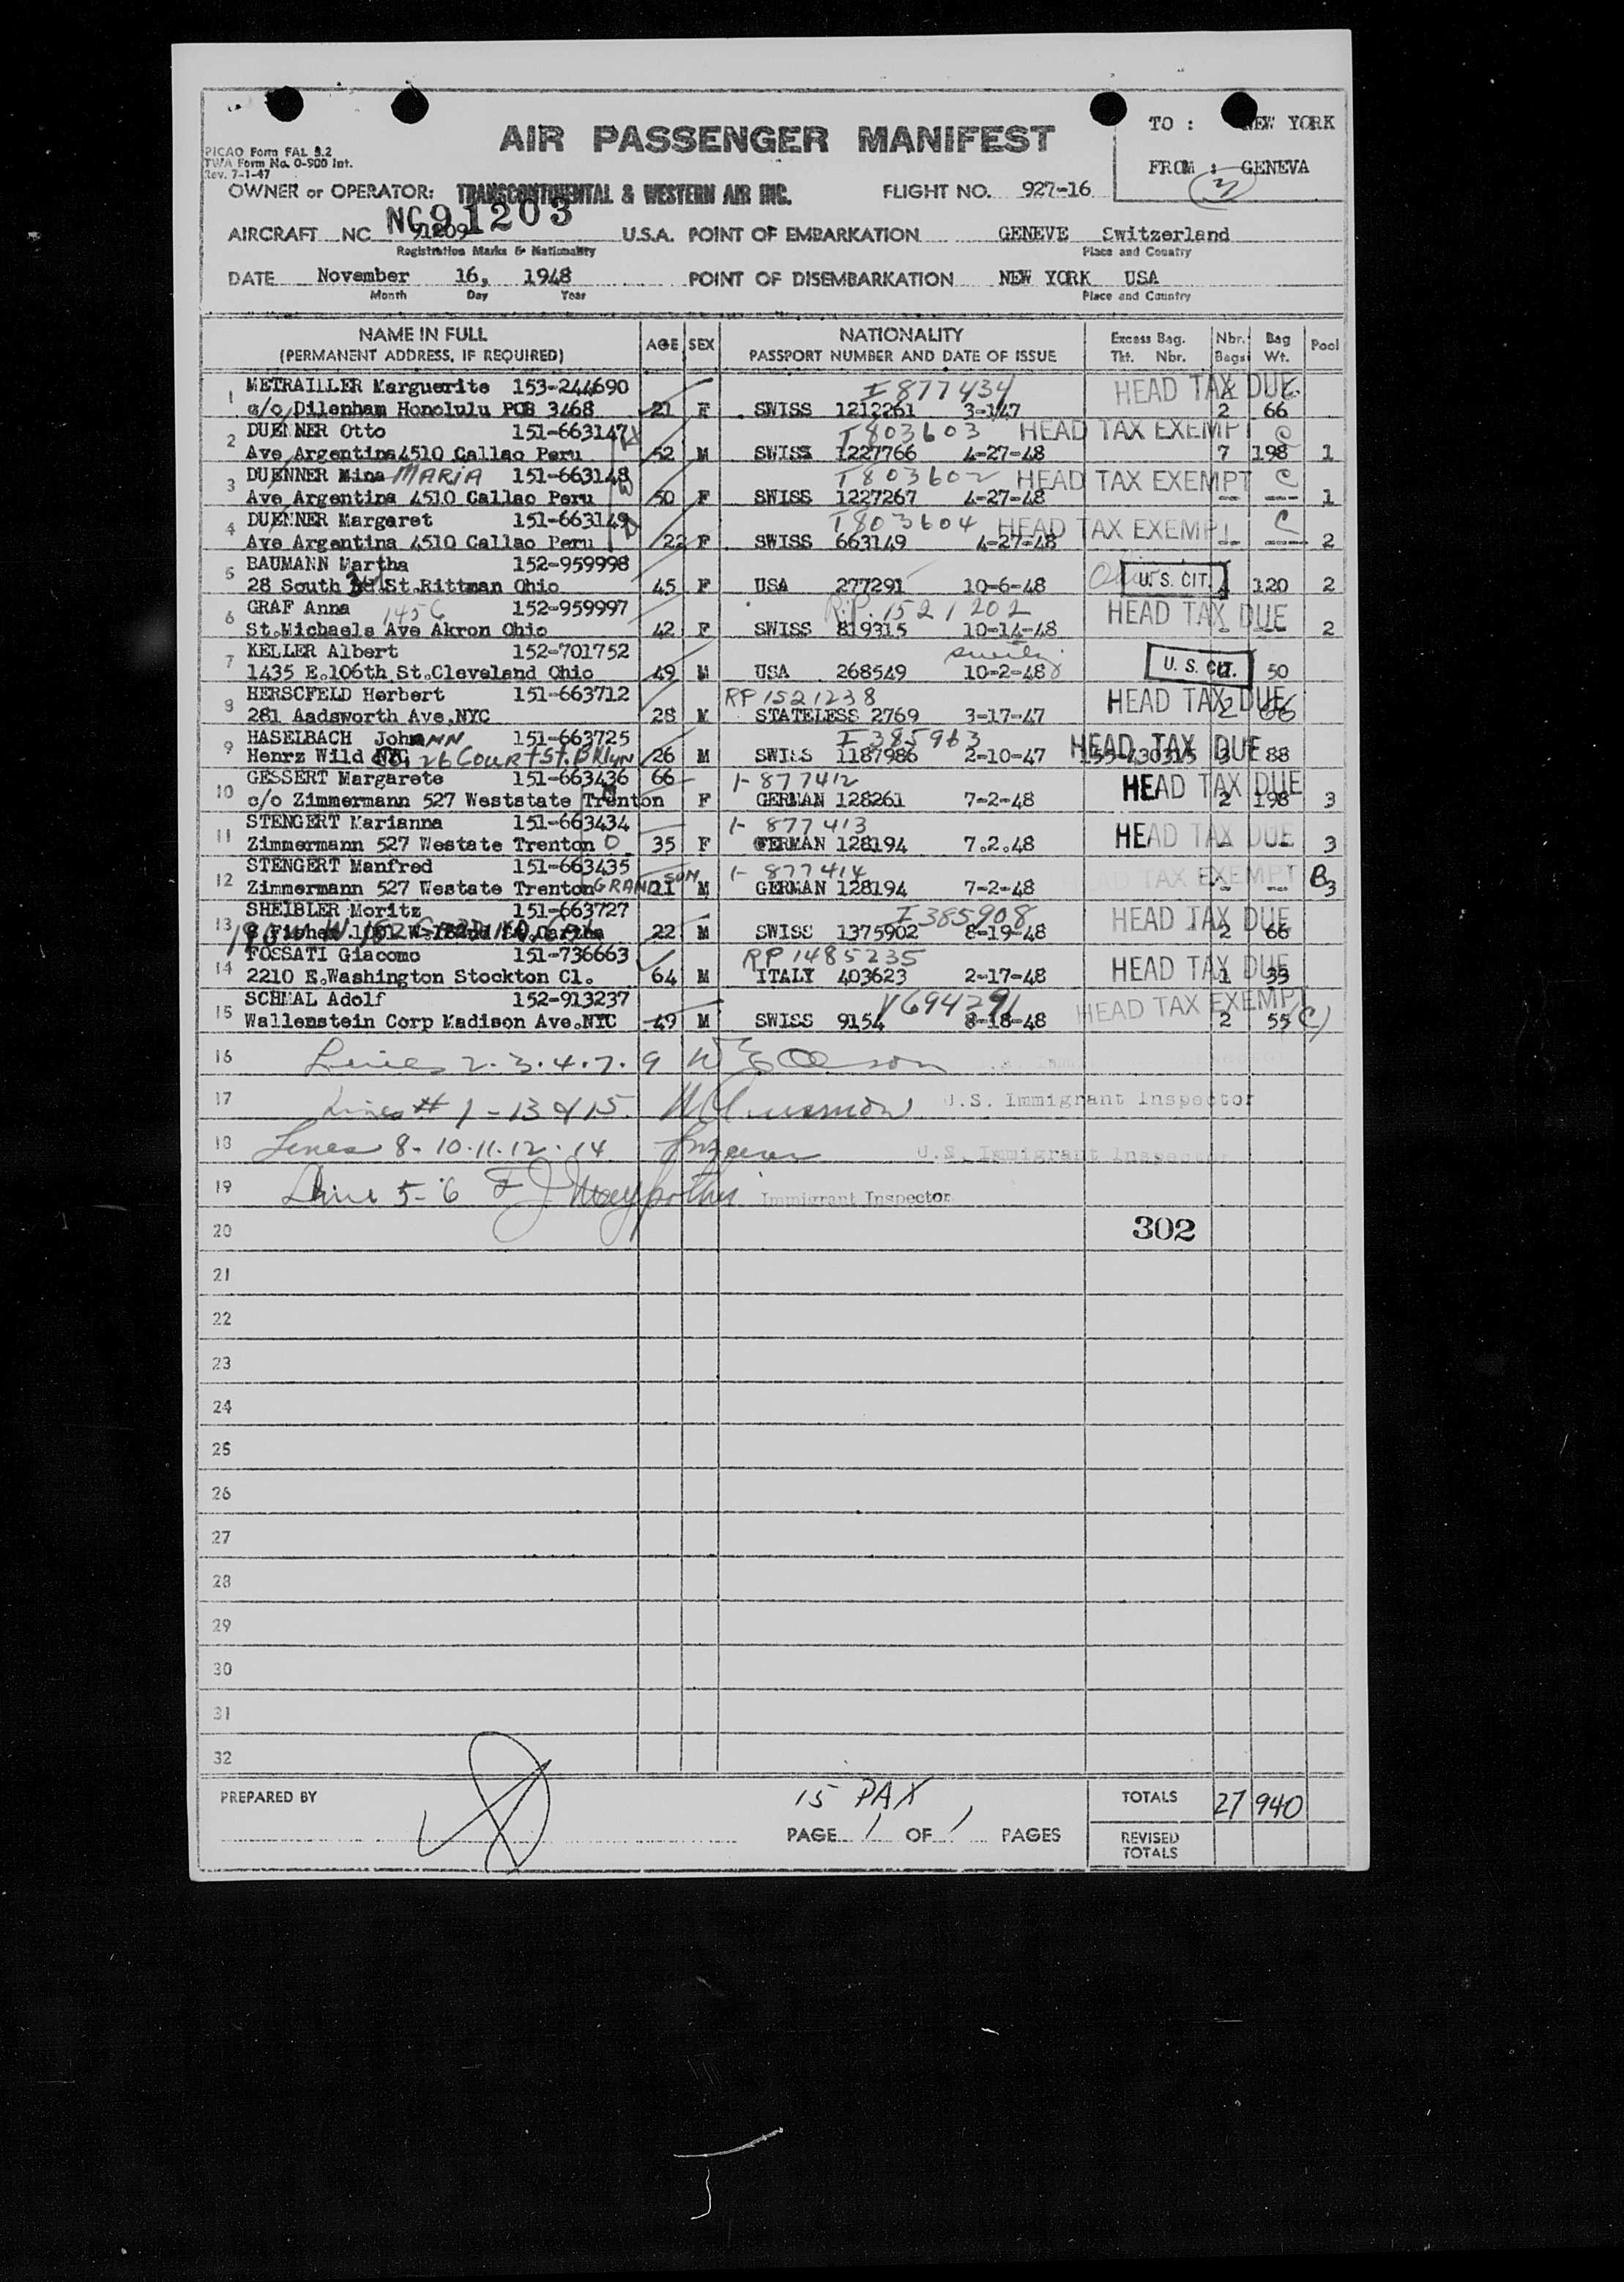 AIR PASSENGER MANIFEST
TO : NEW YORK
FROM : GENEVA
PICAO Form FAL 3.2
TWA Form No. O-900 Int.
Rev. 7-1-47
OWNER or OPERATOR: TRANSCONTINENTAL & WESTERN AIR INC. FLIGHT NO. 927-16
NC91203
AIRCRAFT NC 91209 U.S.A. POINT OF EMBARKATION GENEVE Switzerland
Registration Marks & Nationality Place and Country
DATE November 16, 1948 POINT OF DISEMBARKATION NEW YORK USA
Month Day Year Place and Country
NAME IN FULL (PERMANENT ADDRESS, IF REQUIRED) AGE SEX NATIONALITY PASSPORT NUMBER AND DATE OF ISSUE Excess Bag. Tkt. Nbr. Nbr. Bags Bag Wt. Pool
1 METRAILLER Marguerite 153-244690 I 877434 HEAD TAX DUE
c/o Dilenham Honolulu POB 3468 21 F SWISS 1212261 3-1-47 2 66
2 DUENNER Otto 151-663147 I 803603 HEAD TAX EXEMPT C
Ave Argentina 4510 Callao Peru 52 M SWISS 1227766 4-27-48 7 198 1
3 DUENNER Mina MARIA 151-663148 I 803602 HEAD TAX EXEMPT C
Ave Argentina 4510 Callao Peru 50 F SWISS 1227267 4-27-48 -- --- 1
4 DUENNER Margaret 151-663149 I 803604 HEAD TAX EXEMPT C
Ave Argentina 4510 Callao Peru 22 F SWISS 663149 4-27-48 -- --- 2
5 BAUMANN Martha 152-959998
28 South St.Rittman Ohio 45 F USA 277291 10-6-48 U.S. CIT. 4 120 2
6 GRAF Anna 1456 152-959997 R.P. 1521202 HEAD TAX DUE
St.Michaels Ave Akron Ohio 42 F SWISS 819315 10-14-48 2
7 KELLER Albert 152-701752
1435 E.106th St.Cleveland Ohio 49 M USA 268549 10-2-48 U. S. CIT. 50
8 HERSCFELD Herbert 151-663712 RP 1521238 HEAD TAX DUE
281 Aadsworth Ave,NYC 28 M STATELESS 2769 3-17-47 2 66
9 HASELBACH JohANN 151-663725 I 385963 HEAD TAX DUE
Henrz Wild 26 COURT ST. BKLYN 26 M SWISS 1187986 2-10-47 155-430315 3 88
10 GESSERT Margarete 151-663436 66 I-877412 HEAD TAX DUE
c/o Zimmermann 527 Weststate Trenton F GERMAN 128261 7-2-48 2 198 3
11 STENGERT Marianna 151-663434 I- 877413 HEAD TAX DUE
Zimmermann 527 Westate Trenton 35 F GERMAN 128194 7.2.48 3
12 STENGERT Manfred 151-663435 I- 877414 HEAD TAX EXEMPT B
Zimmermann 527 Westate Trenton GRANDSON 11 M GERMAN 128194 7-2-48 3
13 SHEIBLER Moritz 151-663727 I 385908 HEAD TAX DUE
22 M SWISS 1375902 8-19-48 2 66
14 FOSSATI Giacomo 151-736663 RP 1485235 HEAD TAX DUE
2210 E.Washington Stockton Cl. 64 M ITALY 403623 2-17-48 1 33
15 SCHMAL Adolf 152-913237 V694291 HEAD TAX EXEMPT
Wallenstein Corp Madison Ave.NYC 49 M SWISS 9154 8-18-48 2 55 (C)
16 Lines 2.3.4.7.9
17 Lines # 1-13 & 15 U.S. Immigrant Inspector
18 Lines 8-10.11.12.14 U.S. Immigrant Inspector
19 Line 5-6 Immigrant Inspector
20 302
21
22
23
24
25
26
27
28
29
30
31
32
PREPARED BY 15 PAX TOTALS 27 940
PAGE 1 OF 1 PAGES REVISED TOTALS